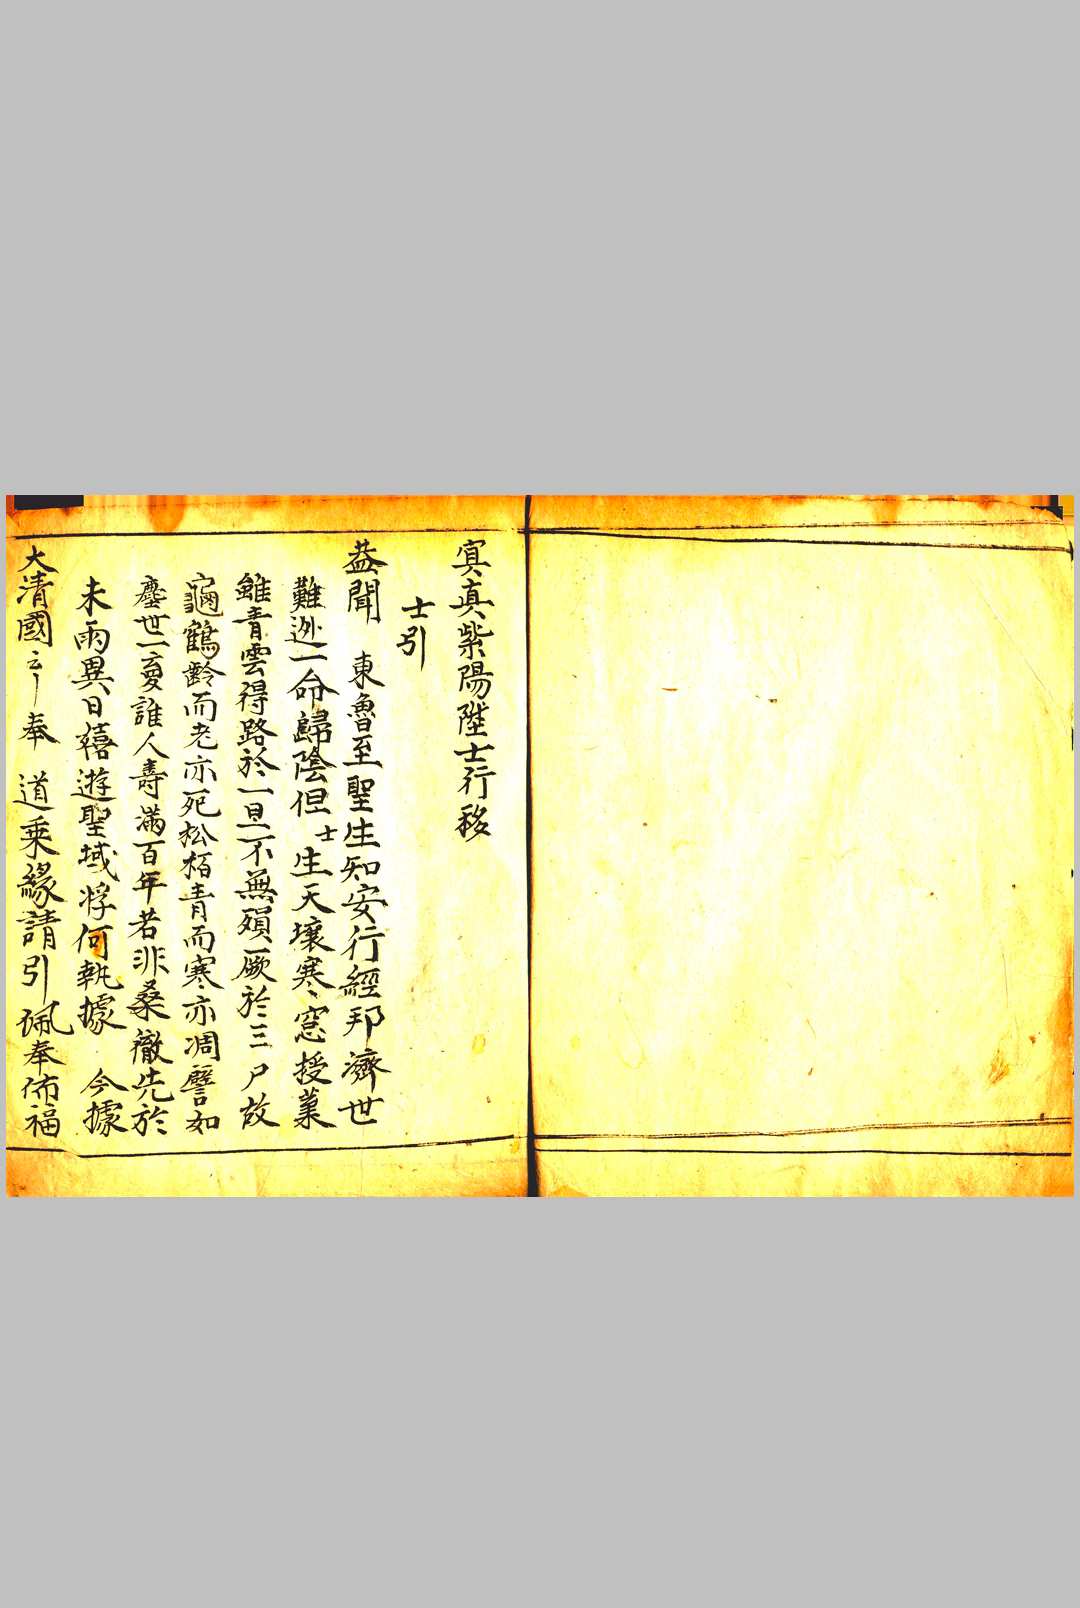 冥真紫陽陞士行移
士引
蓋聞 東魯至聖生知安行經邦濟世
難迯一命歸陰但士生天壤寒窓授業
雖青雲得路於一旦不無殞厥於三尸故
龜鶴齡而老亦死松栢青而寒亦凋譬如
塵世一夏誰人壽滿百年若非桑徹先於
未雨異日禧遊聖域将何執據 今據
大清國云云奉 道乘緣請引珮奉佈福